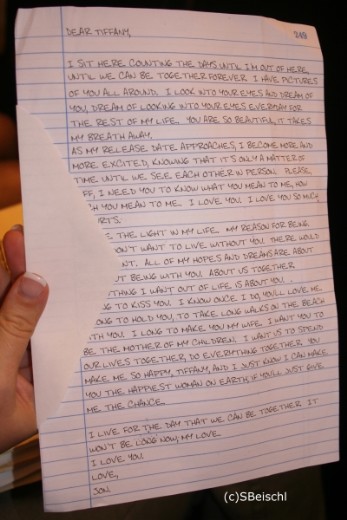 249
DEAR TIFFANY,
I SIT HERE COUNTING THE DAYS UNTIL I'M OUT OF HERE,
UNTIL WE CAN BE TOGETHER FOREVER. I HAVE PICTURES
OF YOU ALL AROUND. I LOOK INTO YOUR EYES AND DREAM OF
YOU, DREAM OF LOOKING INTO YOUR EYES EVERYDAY FOR
THE REST OF MY LIFE. YOU ARE SO BEAUTIFUL, IT TAKES
MY BREATH AWAY.
AS MY RELEASE DATE APPROACHES, I BECOME MORE AND
MORE EXCITED, KNOWING THAT IT'S ONLY A MATTER OF
TIME UNTIL WE SEE EACH OTHER IN PERSON. PLEASE,
FF, I NEED YOU TO KNOW WHAT YOU MEAN TO ME, HOW
H YOU MEAN TO ME. I LOVE YOU. I LOVE YOU SO MUCH
RTS.
E THE LIGHT IN MY LIFE. MY REASON FOR BEING
ON'T WANT TO LIVE WITHOUT YOU. THERE WOULD
NT. ALL OF MY HOPES AND DREAMS ARE ABOUT
UT BEING WITH YOU. ABOUT US TOGETHER.
THING I WANT OUT OF LIFE IS ABOUT YOU.
G TO KISS YOU. I KNOW ONCE I DO, YOU'LL LOVE ME.
ONG TO HOLD YOU, TO TAKE LONG WALKS ON THE BEACH
TH YOU. I LONG TO MAKE YOU MY WIFE. I WANT YOU TO
BE THE MOTHER OF MY CHILDREN. I WANT US TO SPEND
OUR LIVES TOGETHER, DO EVERYTHING TOGETHER. YOU
MAKE ME SO HAPPY, TIFFANY, AND I JUST KNOW I CAN MAKE
YOU THE HAPPIEST WOMAN ON EARTH, IF YOU'LL JUST GIVE
ME THE CHANCE.
I LIVE FOR THE DAY THAT WE CAN BE TOGETHER. IT
WON'T BE LONG NOW, MY LOVE.
I LOVE YOU.
LOVE,
JON
(c)SBeischl